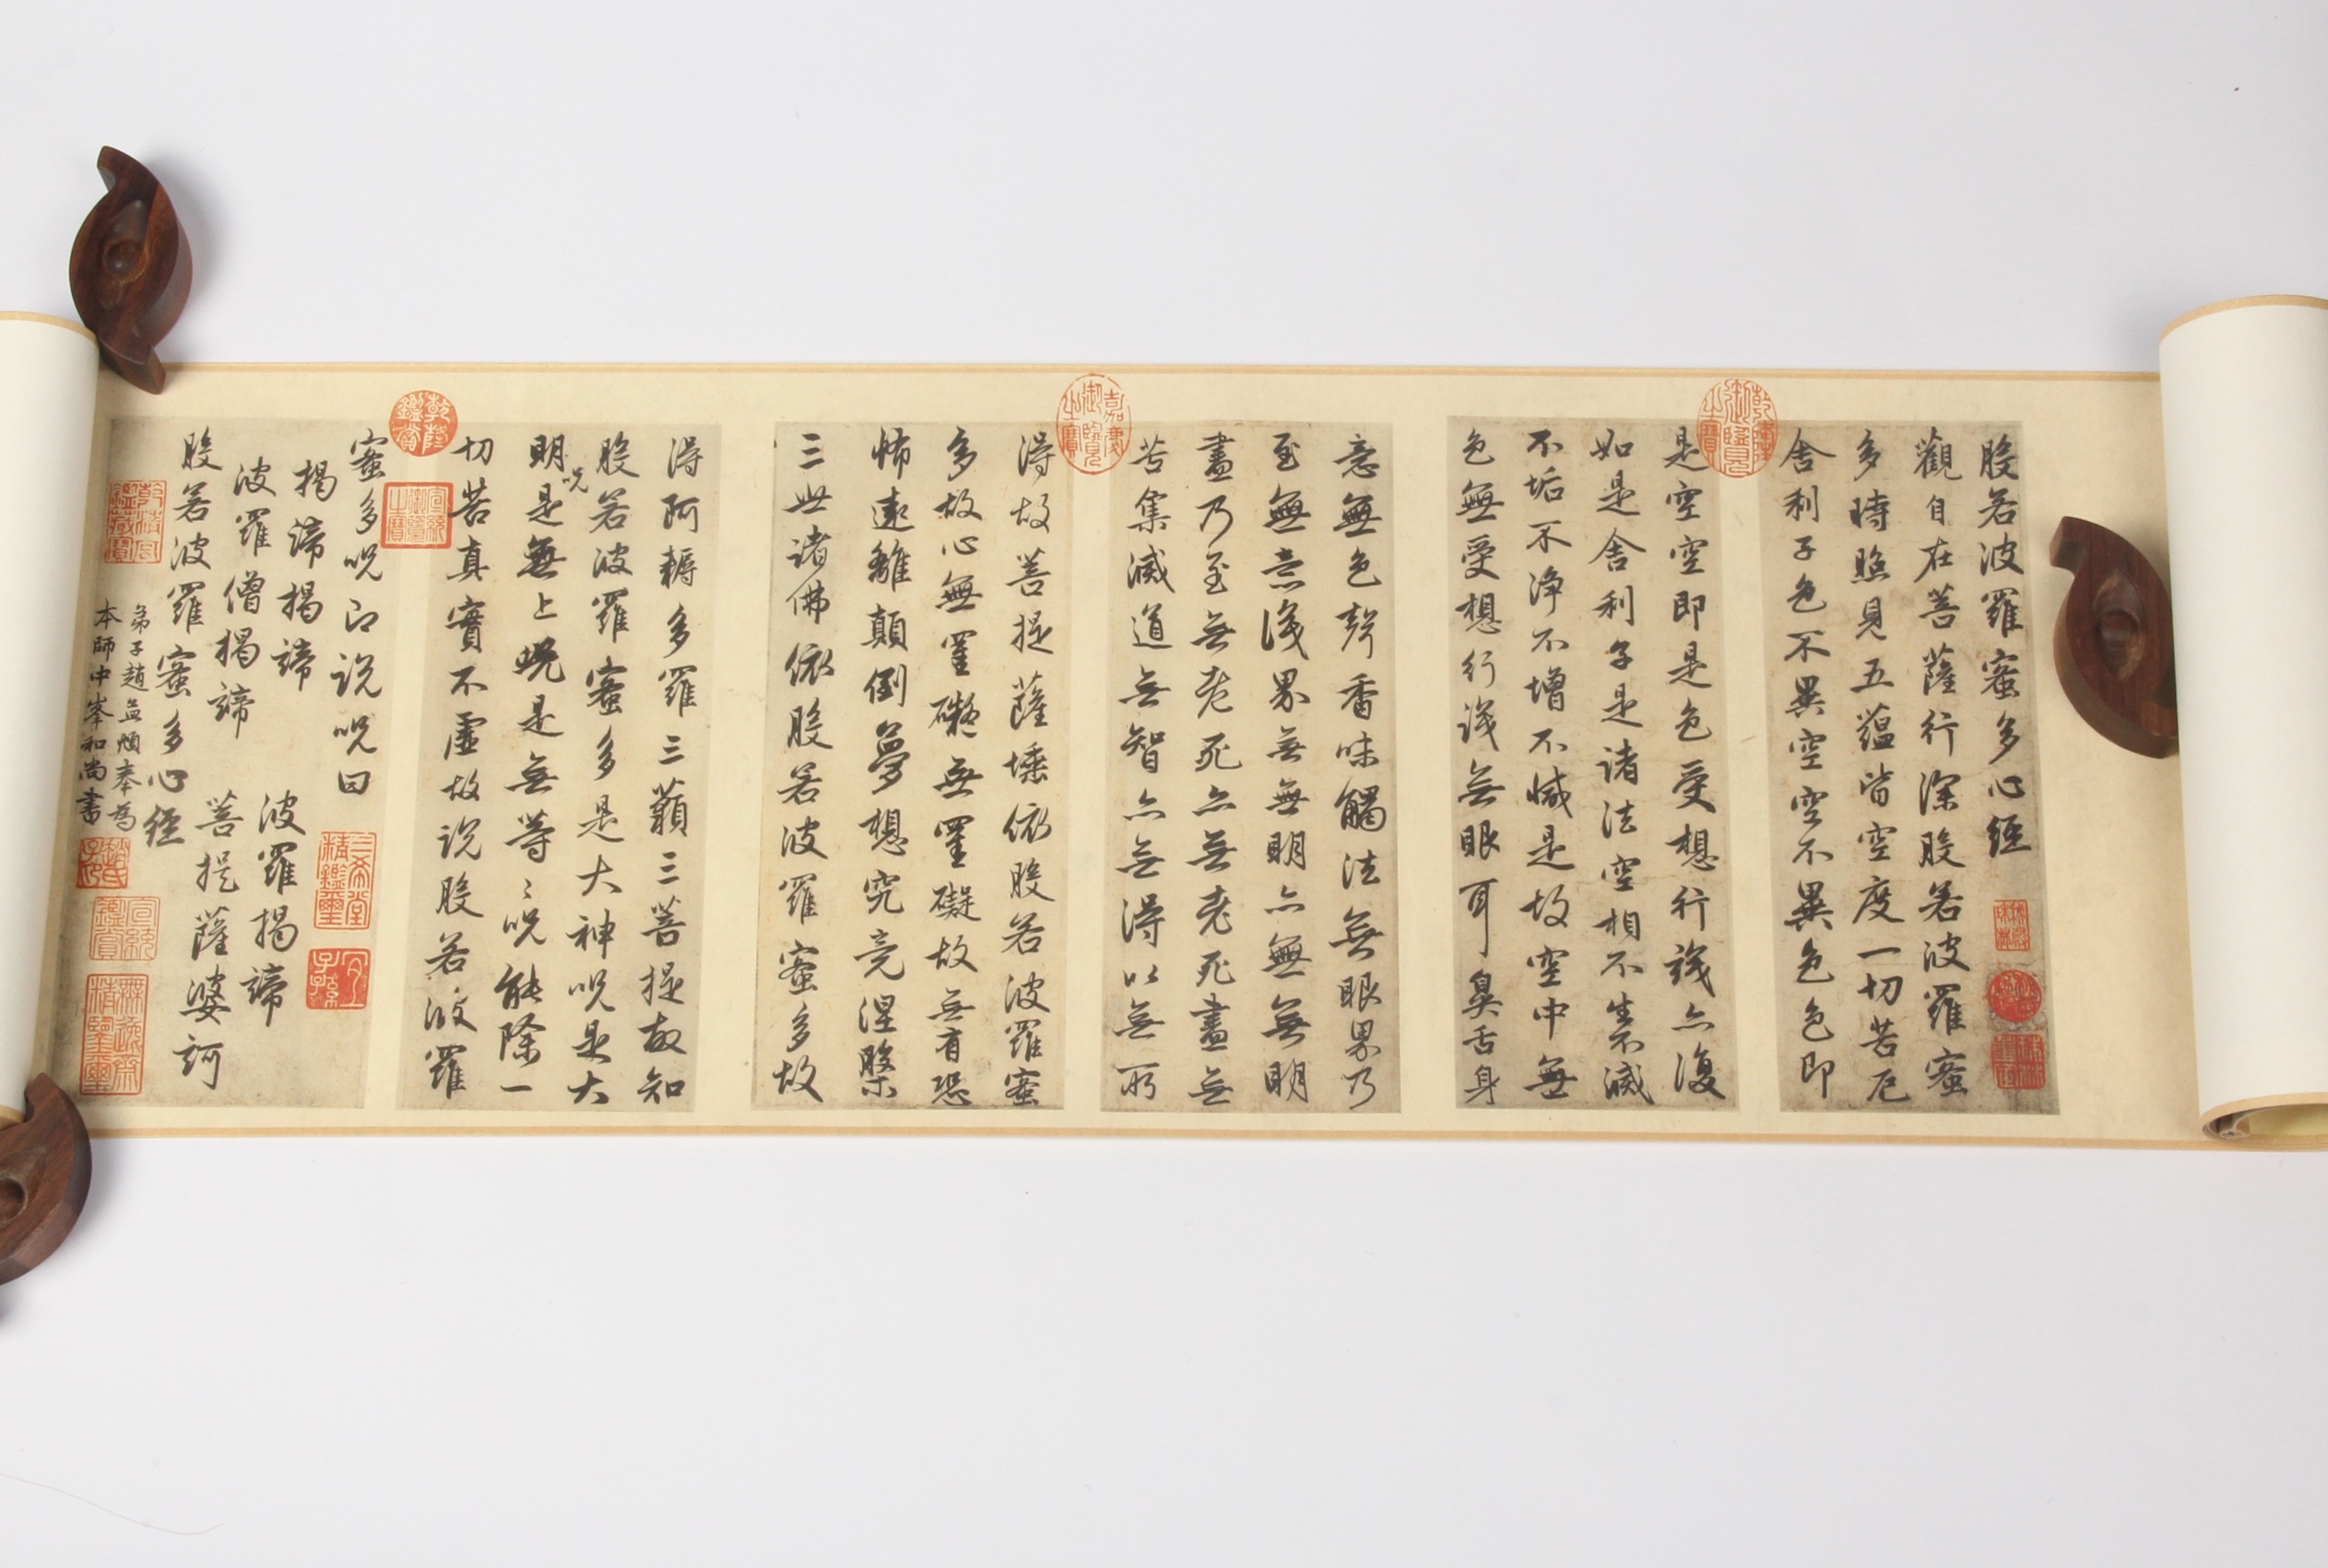 般若波羅蜜多心經
觀自在菩薩行深般若波羅蜜
多時照見五蘊皆空度一切苦厄
舍利子色不異空空不異色色即
乾隆御覽之寶
是空空即是色受想行識亦復
如是舍利子是諸法空相不生不滅
不垢不淨不增不減是故空中無
色無受想行識無眼耳鼻舌身
意無色聲香味觸法無眼界乃
至無意識界無無明亦無無明
盡乃至無老死亦無老死盡無
苦集滅道無智亦無得以無所
嘉慶御覽之寶
得故菩提薩埵依般若波羅蜜
多故心無罣礙無罣礙故無有恐
怖遠離顛倒夢想究竟涅槃
三世諸佛依般若波羅蜜多故
得阿耨多羅三藐三菩提故知
般若波羅蜜多是大神呪是大
明呪是無上呪是無等〻呪能除一
切苦真實不虛故說般若波羅
乾隆鑑賞
宣統御覽之寶
蜜多呪即說呪曰
三希堂精鑑璽
宜子孫
揭諦揭諦 波羅揭諦
波羅僧揭諦 菩提薩婆訶
般若波羅蜜多心經
弟子趙孟頫奉為
本師中峯和尚書
乾清宮鑑藏寶
趙氏子昂
宣統鑑賞
無逸齋精鑑璽